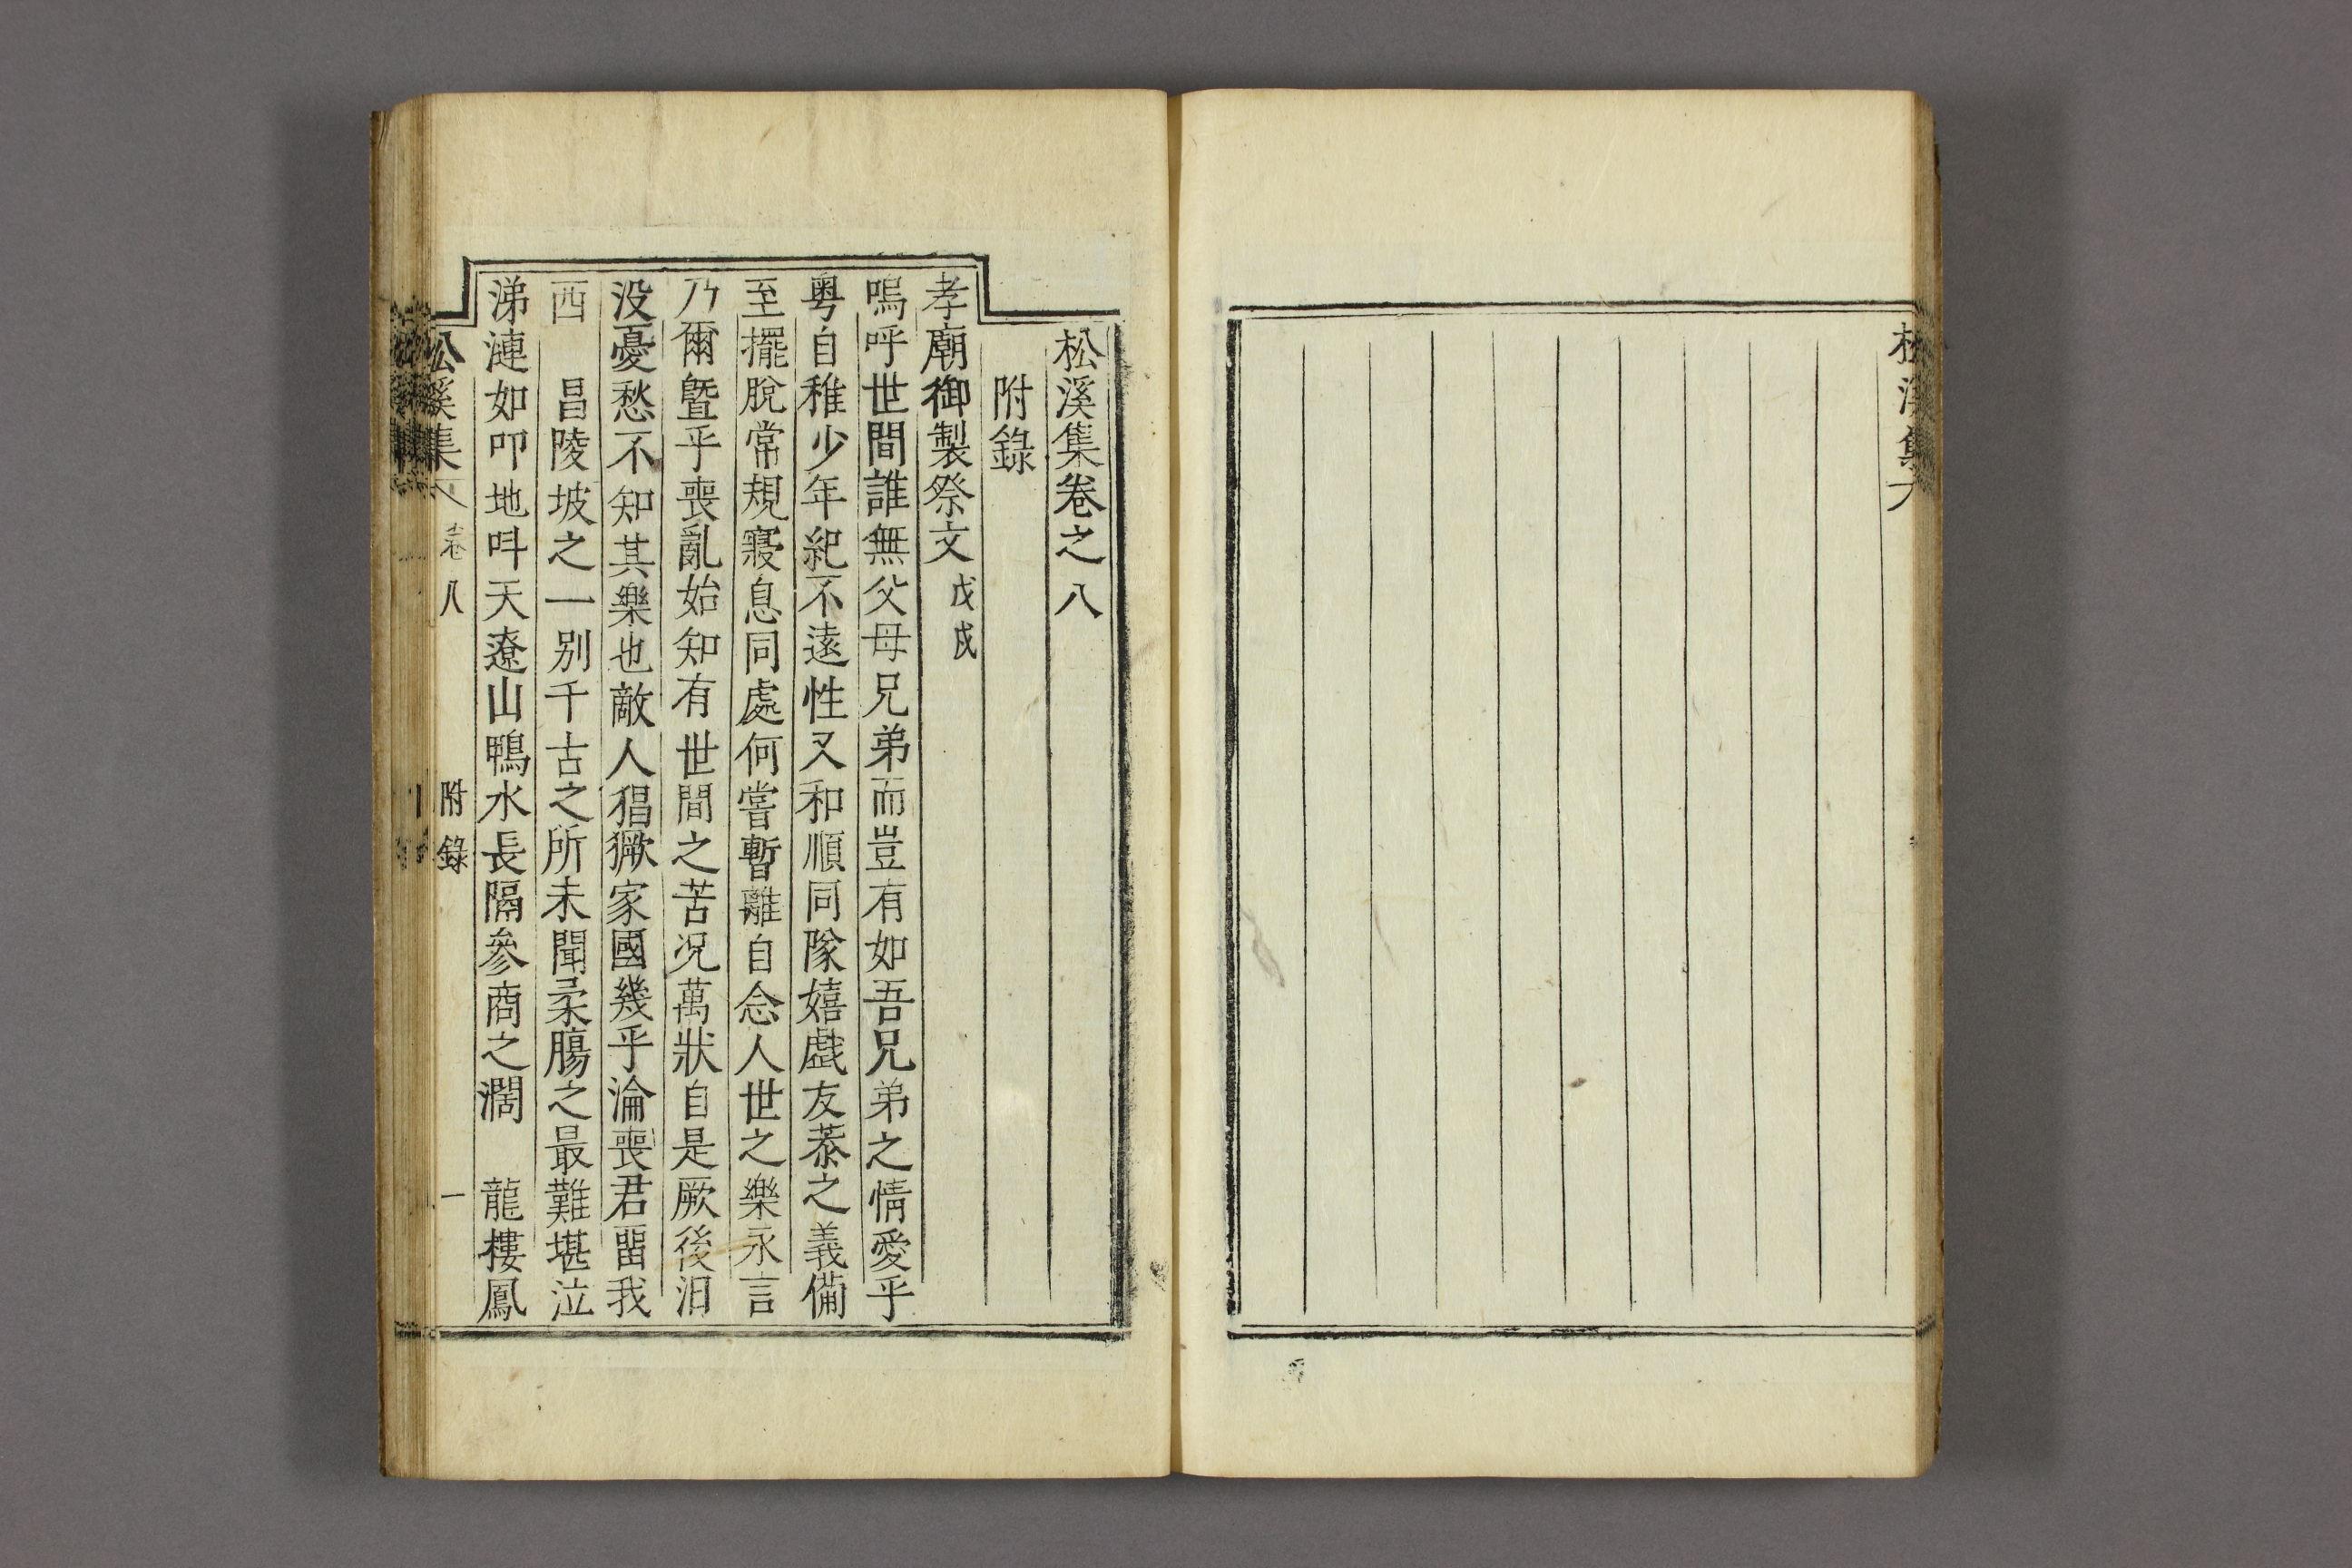 松溪集
松溪集卷之八
附錄
孝廟御製祭文 戊戌
嗚呼世間誰無父母兄弟而豈有如吾兄弟之情愛乎
粤自稚少年紀不遠性又和順同隊嬉戱友恭之義備
至擺脫常規寢息同處何嘗暫離自念人世之樂永言
乃爾曁乎喪亂始知有世間之苦况萬狀自是厥後汨
没憂愁不知其樂也敵人猖獗家國幾乎淪喪君留我
西 昌陵坡之一别千古之所未聞柔膓之最難堪泣
涕漣如叩地呌天遼山鴨水長隔參商之濶 龍樓鳳
松溪集 卷八 附錄 一